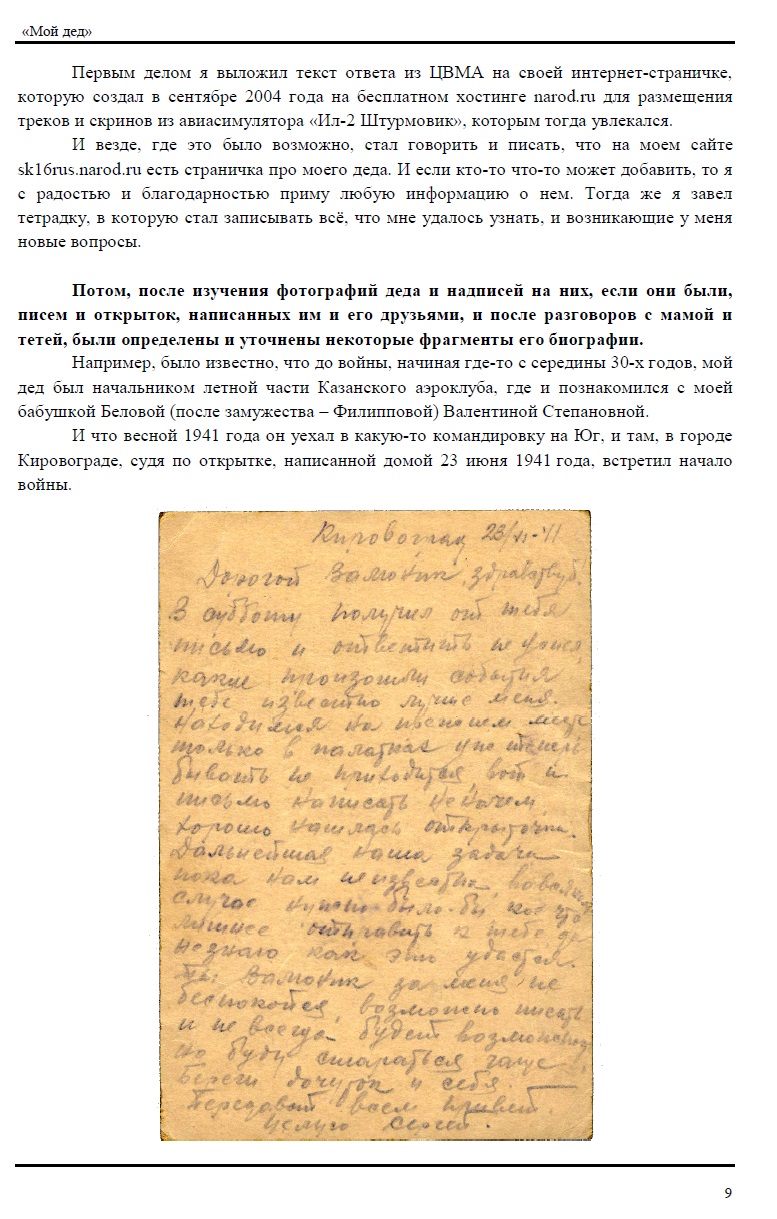 «Мой дед»
Первым делом я выложил текст ответа из ЦВМА на своей интернет-страничке,
которую создал в сентябре 2004 года на бесплатном хостинге narod.ru для размещения
треков и скринов из авиасимулятора «Ил-2 Штурмовик», которым тогда увлекался.
И везде, где это было возможно, стал говорить и писать, что на моем сайте
sk16rus.narod.ru есть страничка про моего деда. И если кто-то что-то может добавить, то я
с радостью и благодарностью приму любую информацию о нем. Тогда же я завел
тетрадку, в которую стал записывать всё, что мне удалось узнать, и возникающие у меня
новые вопросы.
Потом, после изучения фотографий деда и надписей на них, если они были,
писем и открыток, написанных им и его друзьями, и после разговоров с мамой и
тетей, были определены и уточнены некоторые фрагменты его биографии.
Например, было известно, что до войны, начиная где-то с середины 30-х годов, мой
дед был начальником летной части Казанского аэроклуба, где и познакомился с моей
бабушкой Беловой (после замужества – Филипповой) Валентиной Степановной.
И что весной 1941 года он уехал в какую-то командировку на Юг, и там, в городе
Кировограде, судя по открытке, написанной домой 23 июня 1941 года, встретил начало
войны.
Кировоград 23/VI-41
Дорогой Валюник, здравствуй!
В субботу получил от тебя
письмо и ответить не
какие произошли события
тебе известно лучше меня.
Находимся на месте
только в палатках
бывать не приходится вот и
письмо написать не на чем
хорошо нашлась открыточка.
Дальнейшая наша задача
пока нам неизвестна, во всяком
случае нужно было-бы кое что
лишнее отправить к тебе, да
незнаю как это удастся.
Ты Валюник за меня не
беспокойся, возможно писать
и не всегда будет возможность
но буду стараться чаще.
Береги дочурок и себя.
Передавай всем привет.
Целую Сергей.
9